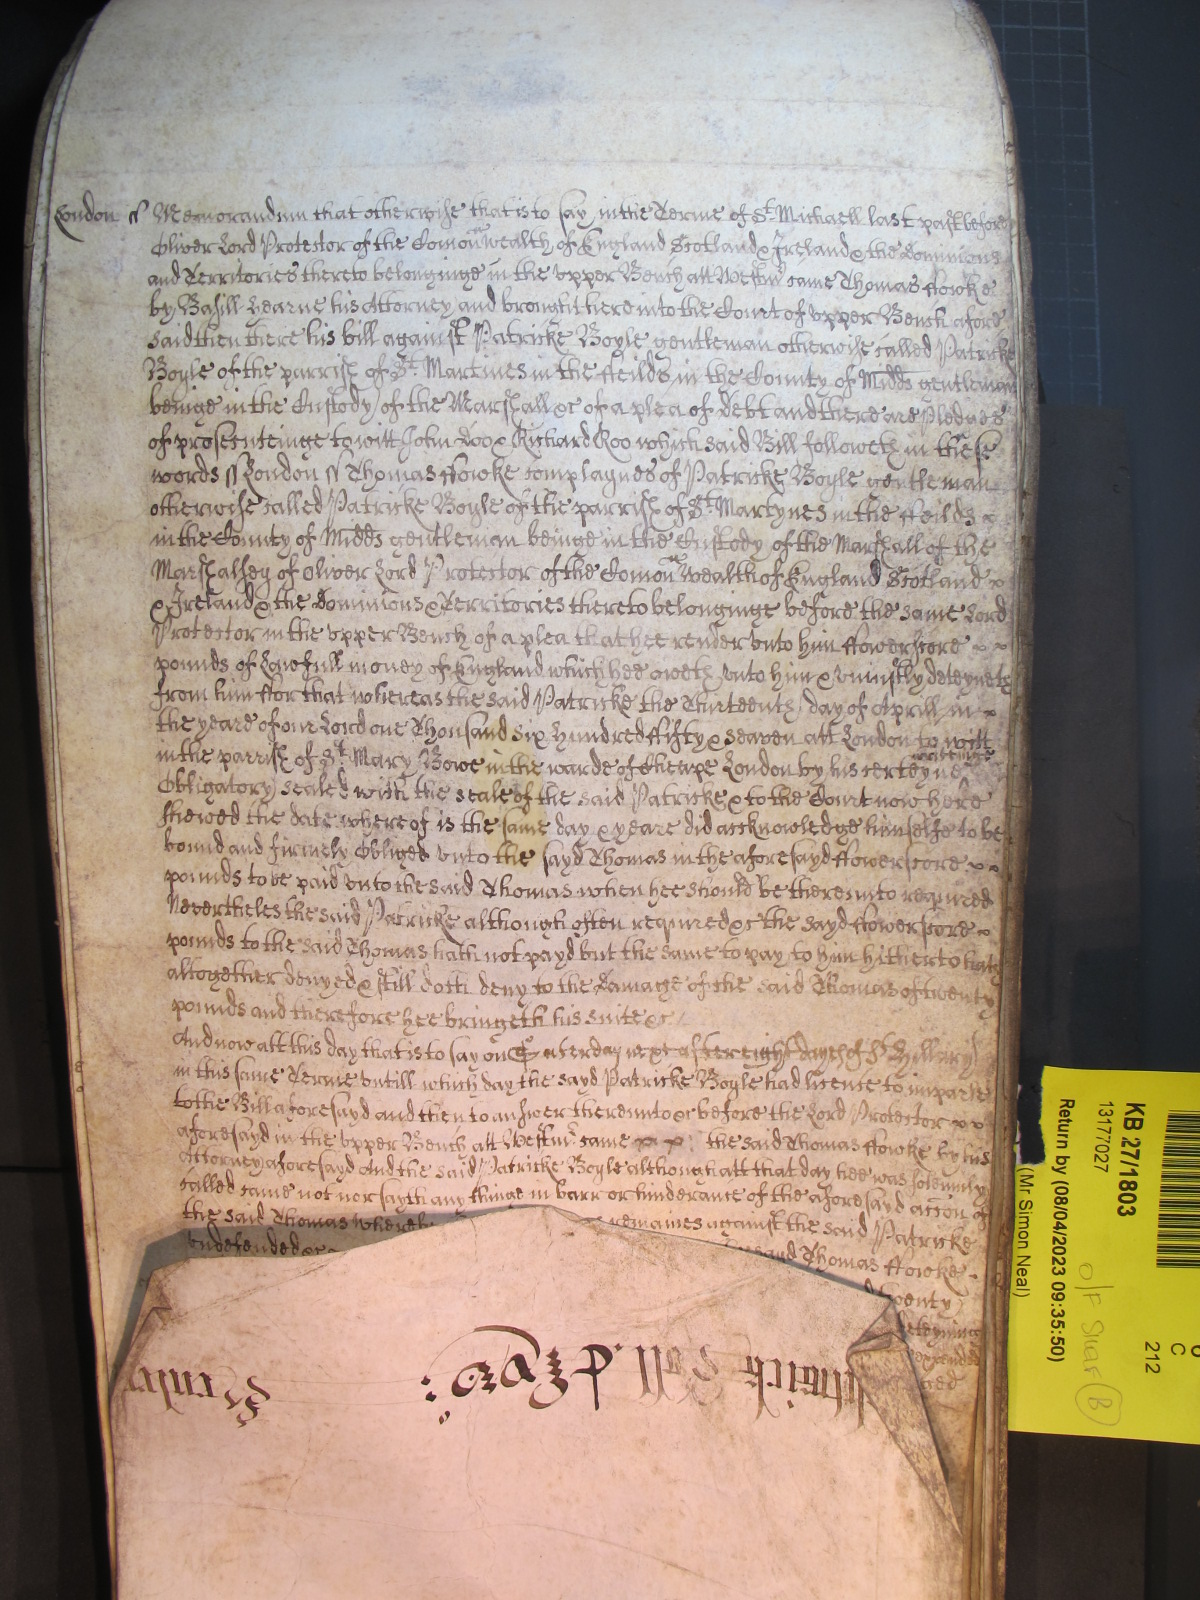 London ss Memorandum that otherwise that is to say in the Terme of St. Michaell last past before
Oliver Lord Protector of the Comonwealth of England Scotland & Ireland & the Dominions
and Territories thereto belonginge in the upper Bench att Westmr came Thomas ffowke
by Basill Hearne his Attorney and brought here into the Court of upper Bench afore
said then there his bill against Patricke Boyle gentleman otherwise called Patricke
Boyle of the parrish of St. Martines in the ffeilds in the County of Midds gentleman
beinge in the Custody of the Marshall &c of a plea of debt and there are Pledges
of prosecuteinge to witt John Doo & Richard Roo which said Bill followeth in these
words ss London ss Thomas ffowke complaynes of Patricke Boyle gentleman
otherwise called Patricke Boyle of the parrish of St. Martynes in the ffeilds
in the County of Midds gentleman beinge in the Custody of the Marshall of the
Marshalsey of Oliver Lord Protector of the Comonwealth of England Scotland
& Ireland & the Dominions & Territories thereto belonginge before the same Lord
Protector in the upper Bench of a plea that hee render unto him ffowerscore
pounds of Lawfull money of England which hee oweth unto him & uniustly deteyneth
from him ffor that whereas the said Patricke the Thirteenth day of Aprill in
the yeare of our Lord one Thousand six hundred ffifty & seaven att London to witt
in the parrish of St. Mary Bowe in the warde of Cheape London by his certeyne writeinge
Obligatory sealed with the seale of the said Patricke & to the Court now here
shewed the date whereof is the same day & yeare did acknowledge himselfe to be
bound and firmely Obliged unto the sayd Thomas in the aforesayd ffowerscore
pounds to be paid unto the said Thomas when hee should be thereunto required
Neverthelesse the said Patricke although often required &c the sayd ffowerscore
pounds to the said Thomas hath not payd but the same to pay to him hitherto hath
altogether denyed & still doth deny to the damage of the said Thomas of twenty
pounds and therefore hee bringeth his suite &c
And now att this day that is to say on Saterday next after eight dayes of St. Hillary
in this same Terme untill which day the sayd Patricke Boyle had licence to imparle
to the Bill aforesayd and then to answer thereunto &c before the Lord Protector
aforesayd in the upper Bench att Westmr came the said Thomas ffowke by his
Attorney aforesayd And the said Patricke Boyle although att that day hee was solemnly
called came not nor sayth any thinge in barr or hinderance of the aforesayd accon of
the said Thomas whereby remaines against the said Patricke
undefended &c sayd Thomas ffowke
twenty
deteyning
expended
KB 27/1803
13177027
Return by (08/04/2023 09:35:50)
(Mr Simon Neal)
O/F Shelf B
C
212